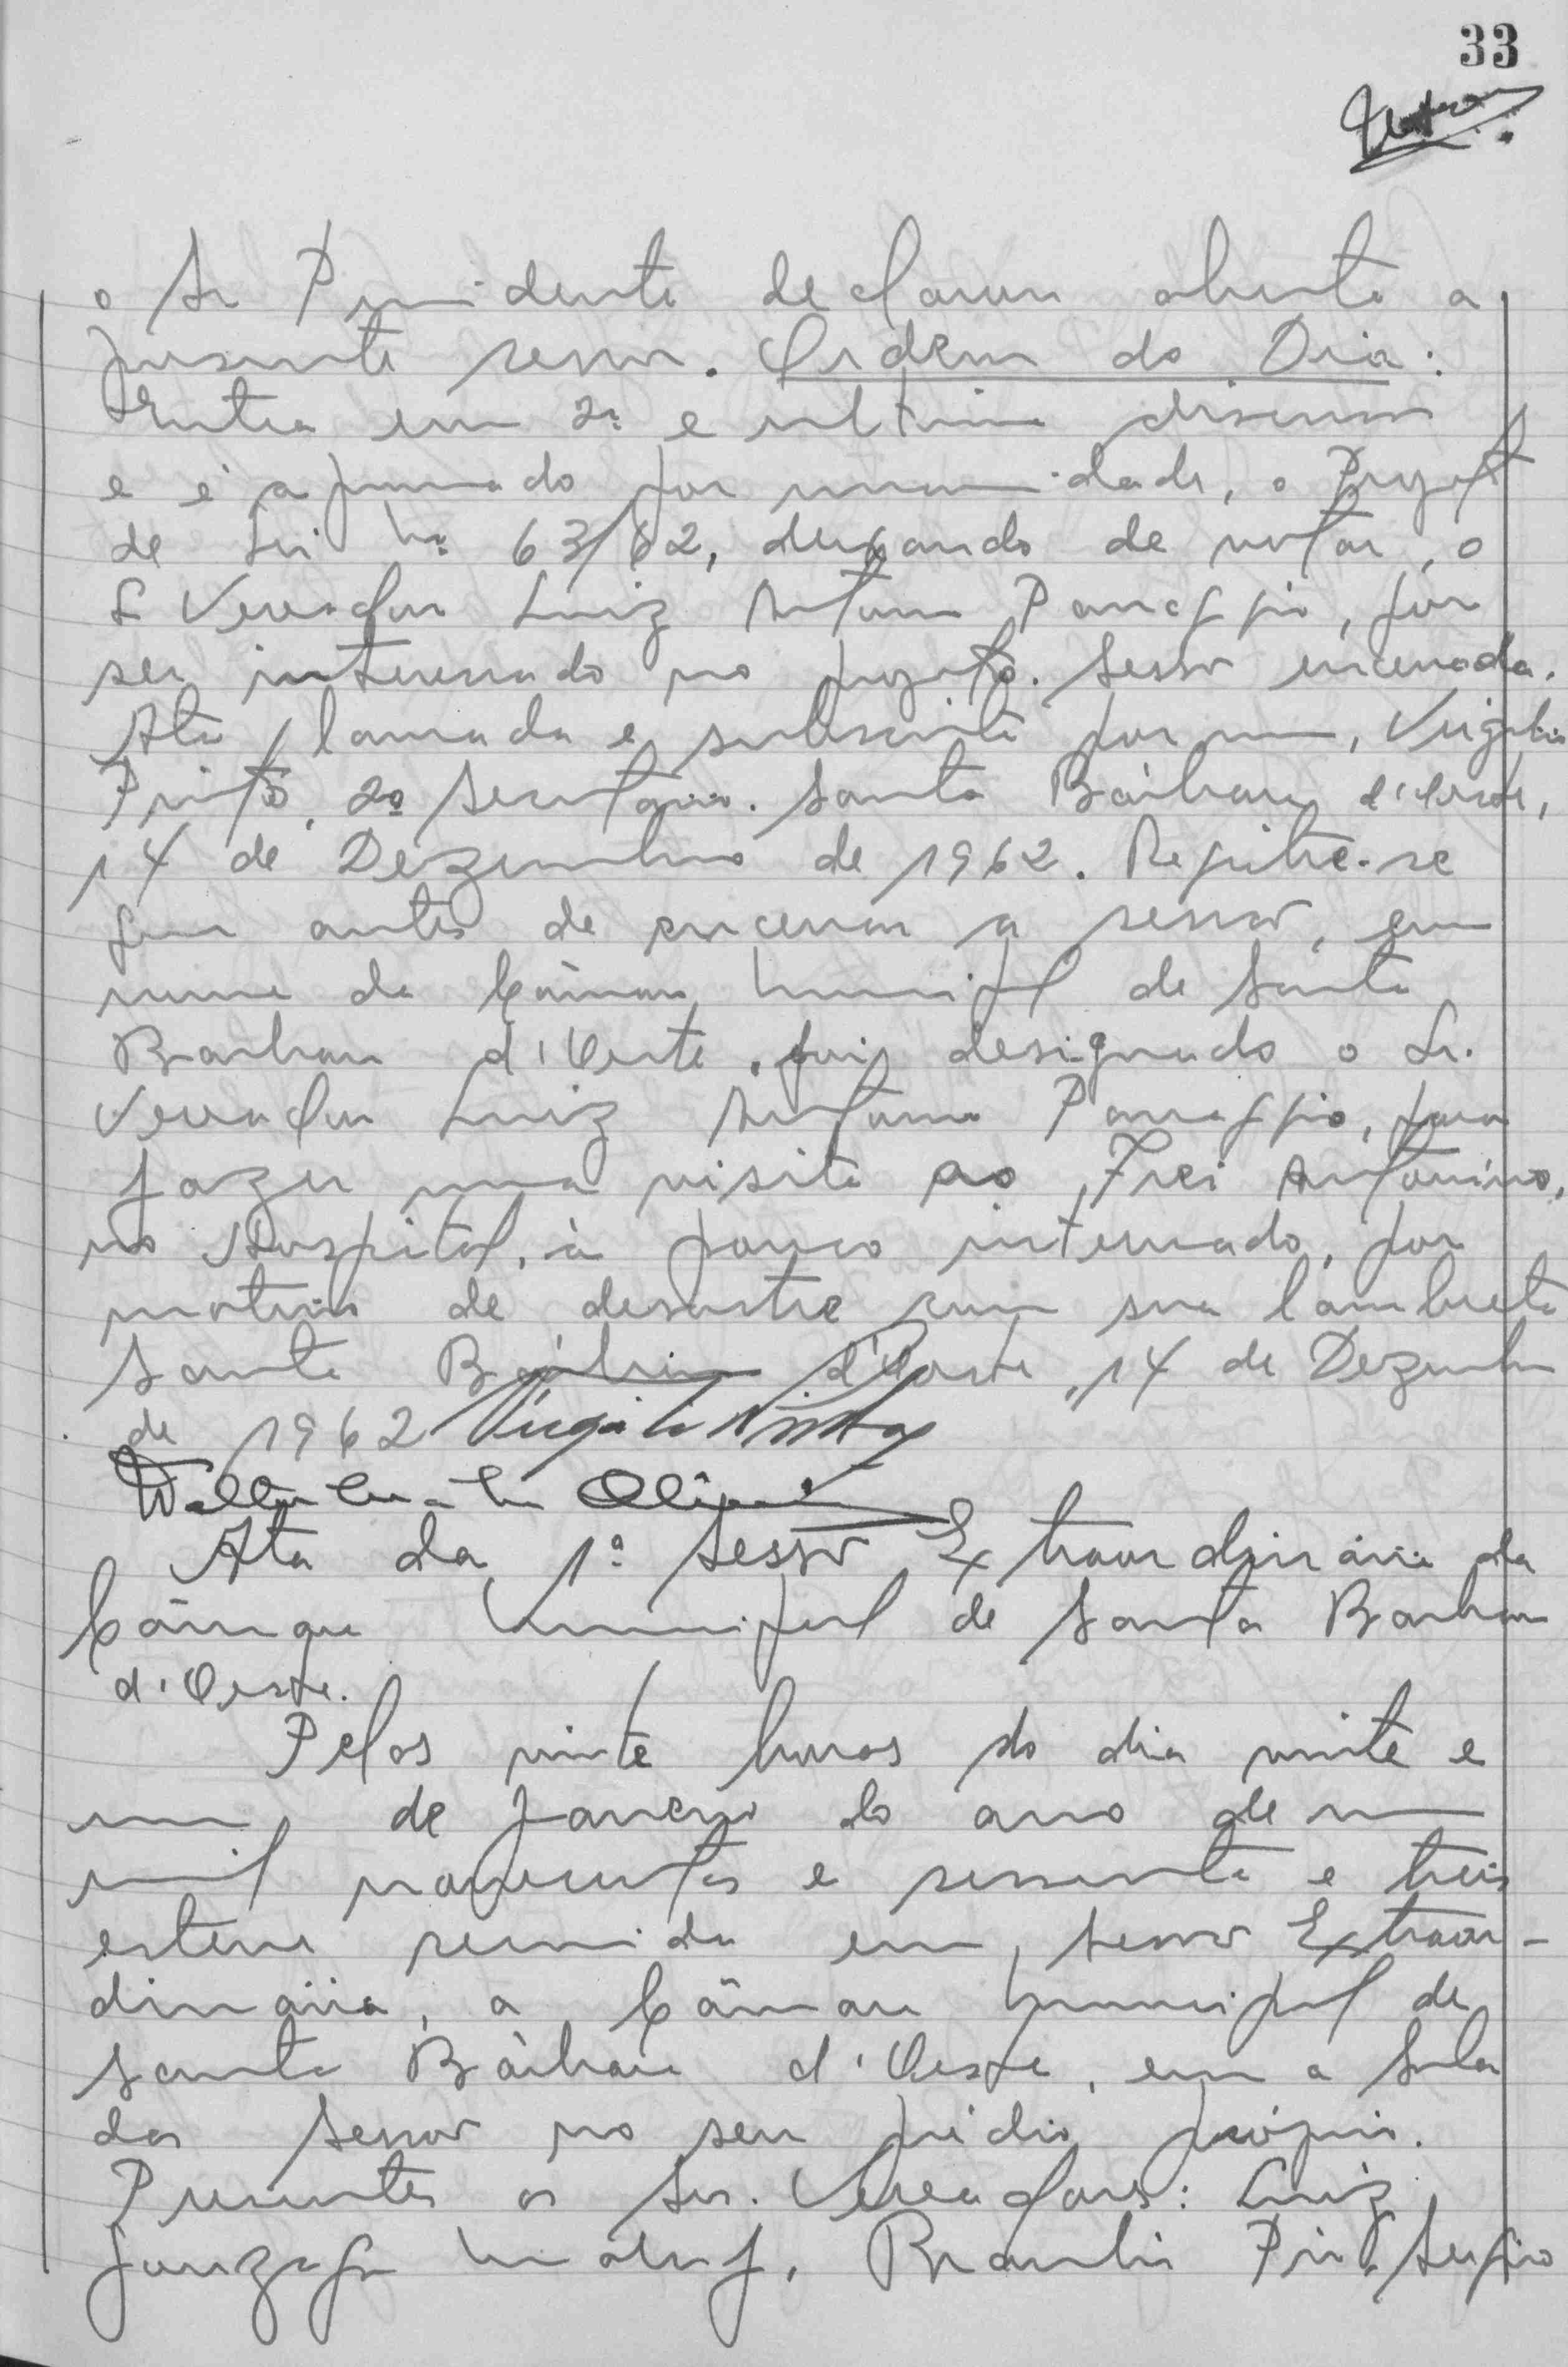 33
o Sr Presidente declarou aberta a
presente sessão. Ordem do Dia:
Entra em 2ª e ultima discussão
e é aprovado por unanimidade, o Projeto
de Lei nº 63/62, deixando de votar, o
Sr Vereador Luiz Antonio Panaggio, por
ser interessado no projeto. Sessão encerrada.
Ata lavrada e subscrita por mim, Virgilio
Pinto, 2º Secretário. Santa Bárbara d'Oeste,
14 de Dezembro de 1962. Registre-se
que antes de encerrar a sessão, em
nome da Câmara Municipal de Santa
Barbara d'Oeste, foi designado o Sr.
Vereador Luiz Antonio Panaggio, para
fazer uma visita ao Frei Antonino,
no Hospital, à pouco internado, por
motivo de desastre com sua lambreta
Santa Bárbara d'Oeste, 14 de Dezembro
de 1962 Virgilio Pinto
Ata da 1ª Sessão Extraordinária da
Câmara Municipal de Santa Barbara
d'Oeste.
Pelas vinte horas do dia vinte e
um de Janeiro do ano de um
mil novecentos e sessenta e treis
esteve reunida em, sessão Extraor-
dinária, a Câmara Municipal de
Santa Bárbara d'Oeste, em a Sala
das Sessão no seu prédio próprio.
Presentes os Srs. Vereadores: Luiz
Gonzaga Braulio Pio, Sergio